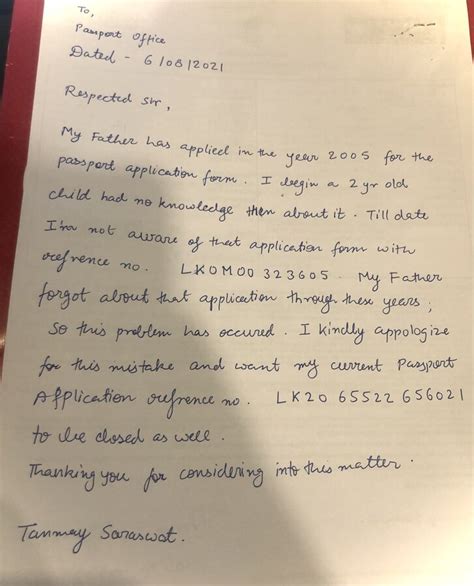 To,
Passport Office
Dated - 6/08/2021
Respected Sir,
My Father has applied in the year 2005 for the
passport application form. I begin a 2 yr old
child had no knowledge then about it. Till date
I'm not aware of that application form with
refrence no. LK0M00 323605. My Father
forgot about that application through these years;
So this problem has occured. I kindly appologize
for this mistake and want my current Passport
Application refrence no. LK20 65522 656021
to be closed as well.
Thanking you for considering into this matter.
Tanmay Saraswat.